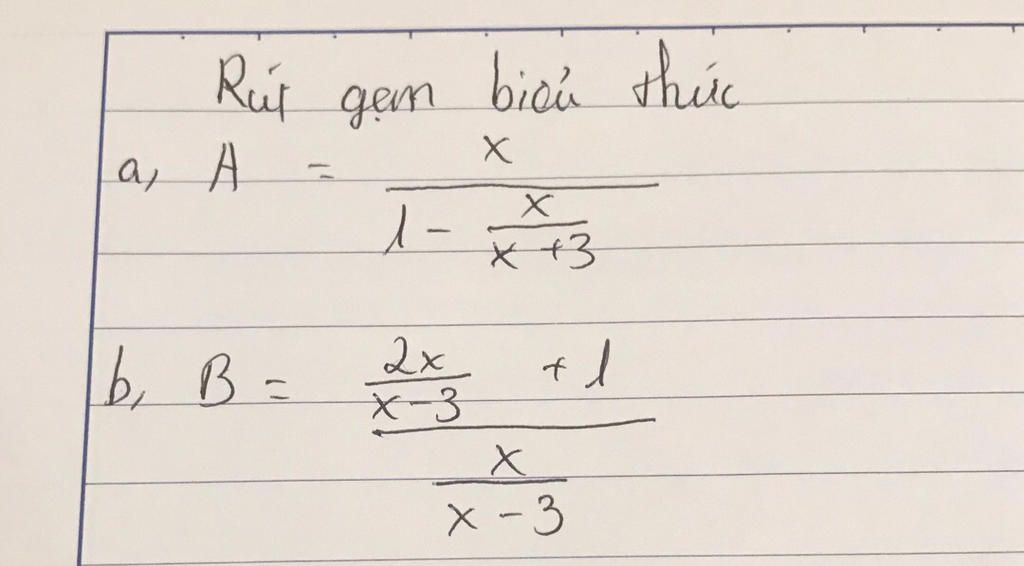 Rút gọn biểu thức
a, A = \frac{x}{1 - \frac{x}{x+3}}
b, B = \frac{\frac{2x}{x-3} + 1}{\frac{x}{x-3}}